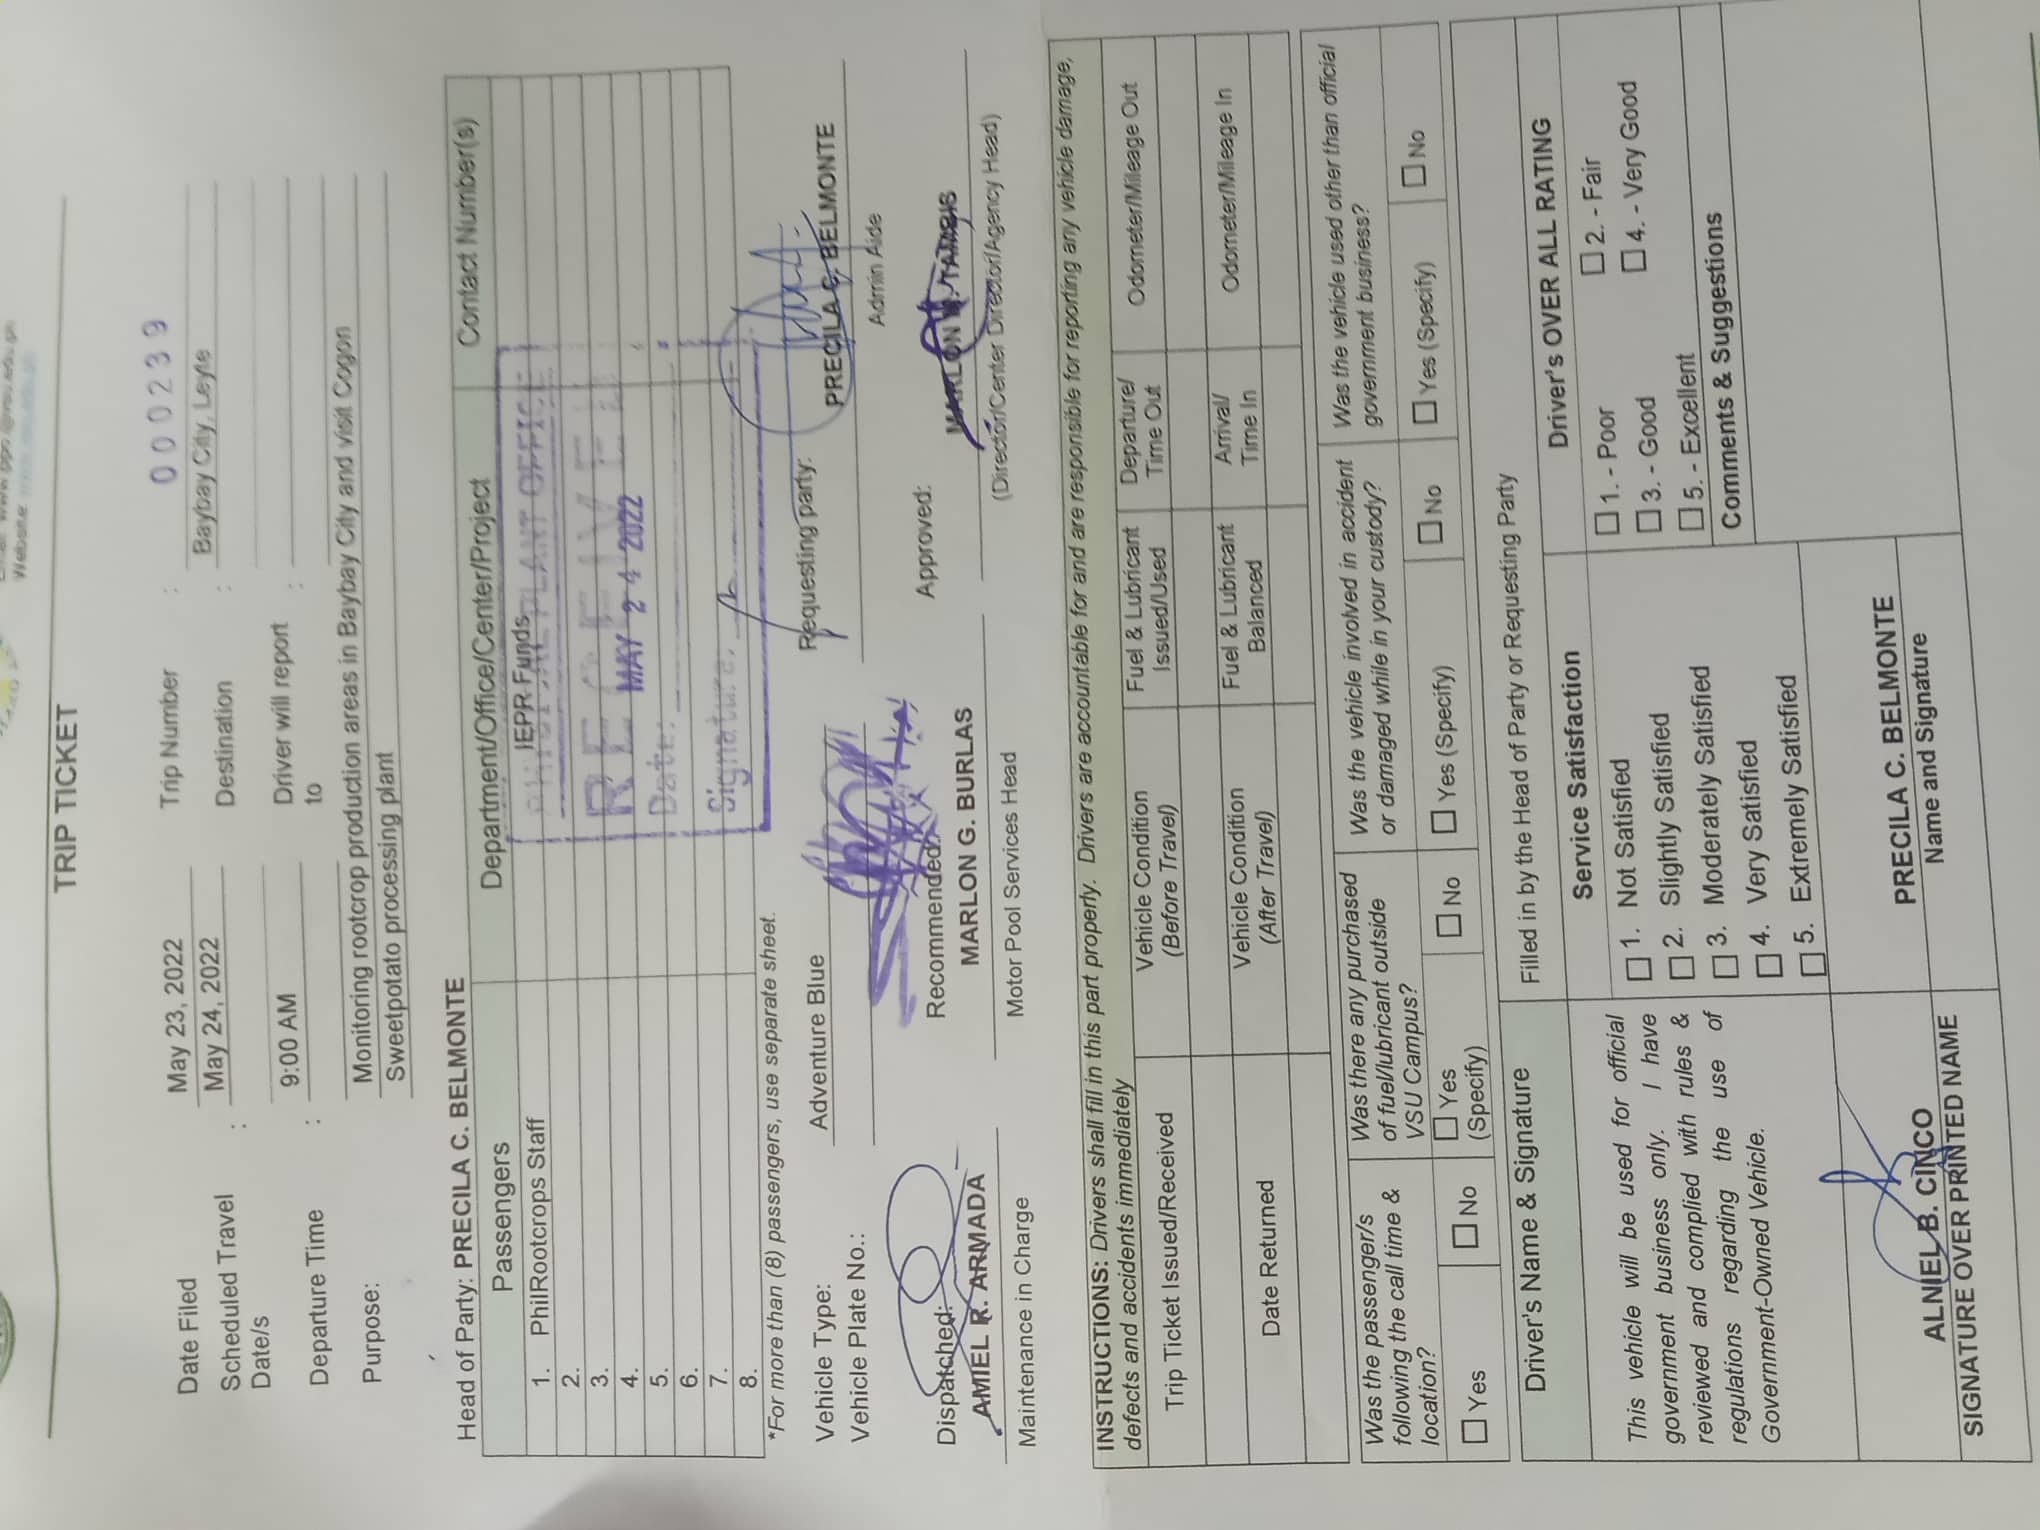 Website:
TRIP TICKET
Date Filed May 23, 2022 Trip Number : 000239
Scheduled Travel Date/s : May 24, 2022 Destination : Baybay City, Leyte
Departure Time : 9:00 AM Driver will report to :
Purpose: Monitoring rootcrop production areas in Baybay City and visit Cogon
Sweetpotato processing plant
Head of Party: PRECILA C. BELMONTE
Passengers Department/Office/Center/Project Contact Number(s)
1. PhilRootcrops Staff IEPR Funds
2.
3.
4.
5.
6.
7.
8.
PHYSICAL PLANT OFFICE
RECEIVED
MAY 24 2022
Date:
Signature:
*For more than (8) passengers, use separate sheet.
Vehicle Type: Adventure Blue Requesting party:
Vehicle Plate No.: PRECILA C. BELMONTE
Admin Aide
Dispatched: Recommended: Approved:
AMIEL R. ARMADA MARLON G. BURLAS MARLON M. TAMBIS
Maintenance in Charge Motor Pool Services Head (Director/Center Director/Agency Head)
INSTRUCTIONS: Drivers shall fill in this part properly. Drivers are accountable for and are responsible for reporting any vehicle damage,
defects and accidents immediately
Trip Ticket Issued/Received Vehicle Condition (Before Travel) Fuel & Lubricant Issued/Used Departure/ Time Out Odometer/Mileage Out
Date Returned Vehicle Condition (After Travel) Fuel & Lubricant Balanced Arrival/ Time In Odometer/Mileage In
Was the passenger/s following the call time & location?
Was there any purchased of fuel/lubricant outside VSU Campus?
Was the vehicle involved in accident or damaged while in your custody?
Was the vehicle used other than official government business?
Yes No Yes (Specify) No Yes (Specify) No Yes (Specify) No
Driver's Name & Signature Filled in by the Head of Party or Requesting Party
This vehicle will be used for official
government business only. I have
reviewed and complied with rules &
regulations regarding the use of
Government-Owned Vehicle.
Service Satisfaction
1. Not Satisfied
2. Slightly Satisfied
3. Moderately Satisfied
4. Very Satisfied
5. Extremely Satisfied
Driver's OVER ALL RATING
1. - Poor 2. - Fair
3. - Good 4. - Very Good
5. - Excellent
Comments & Suggestions
ALNIEL B. CINCO PRECILA C. BELMONTE
SIGNATURE OVER PRINTED NAME Name and Signature